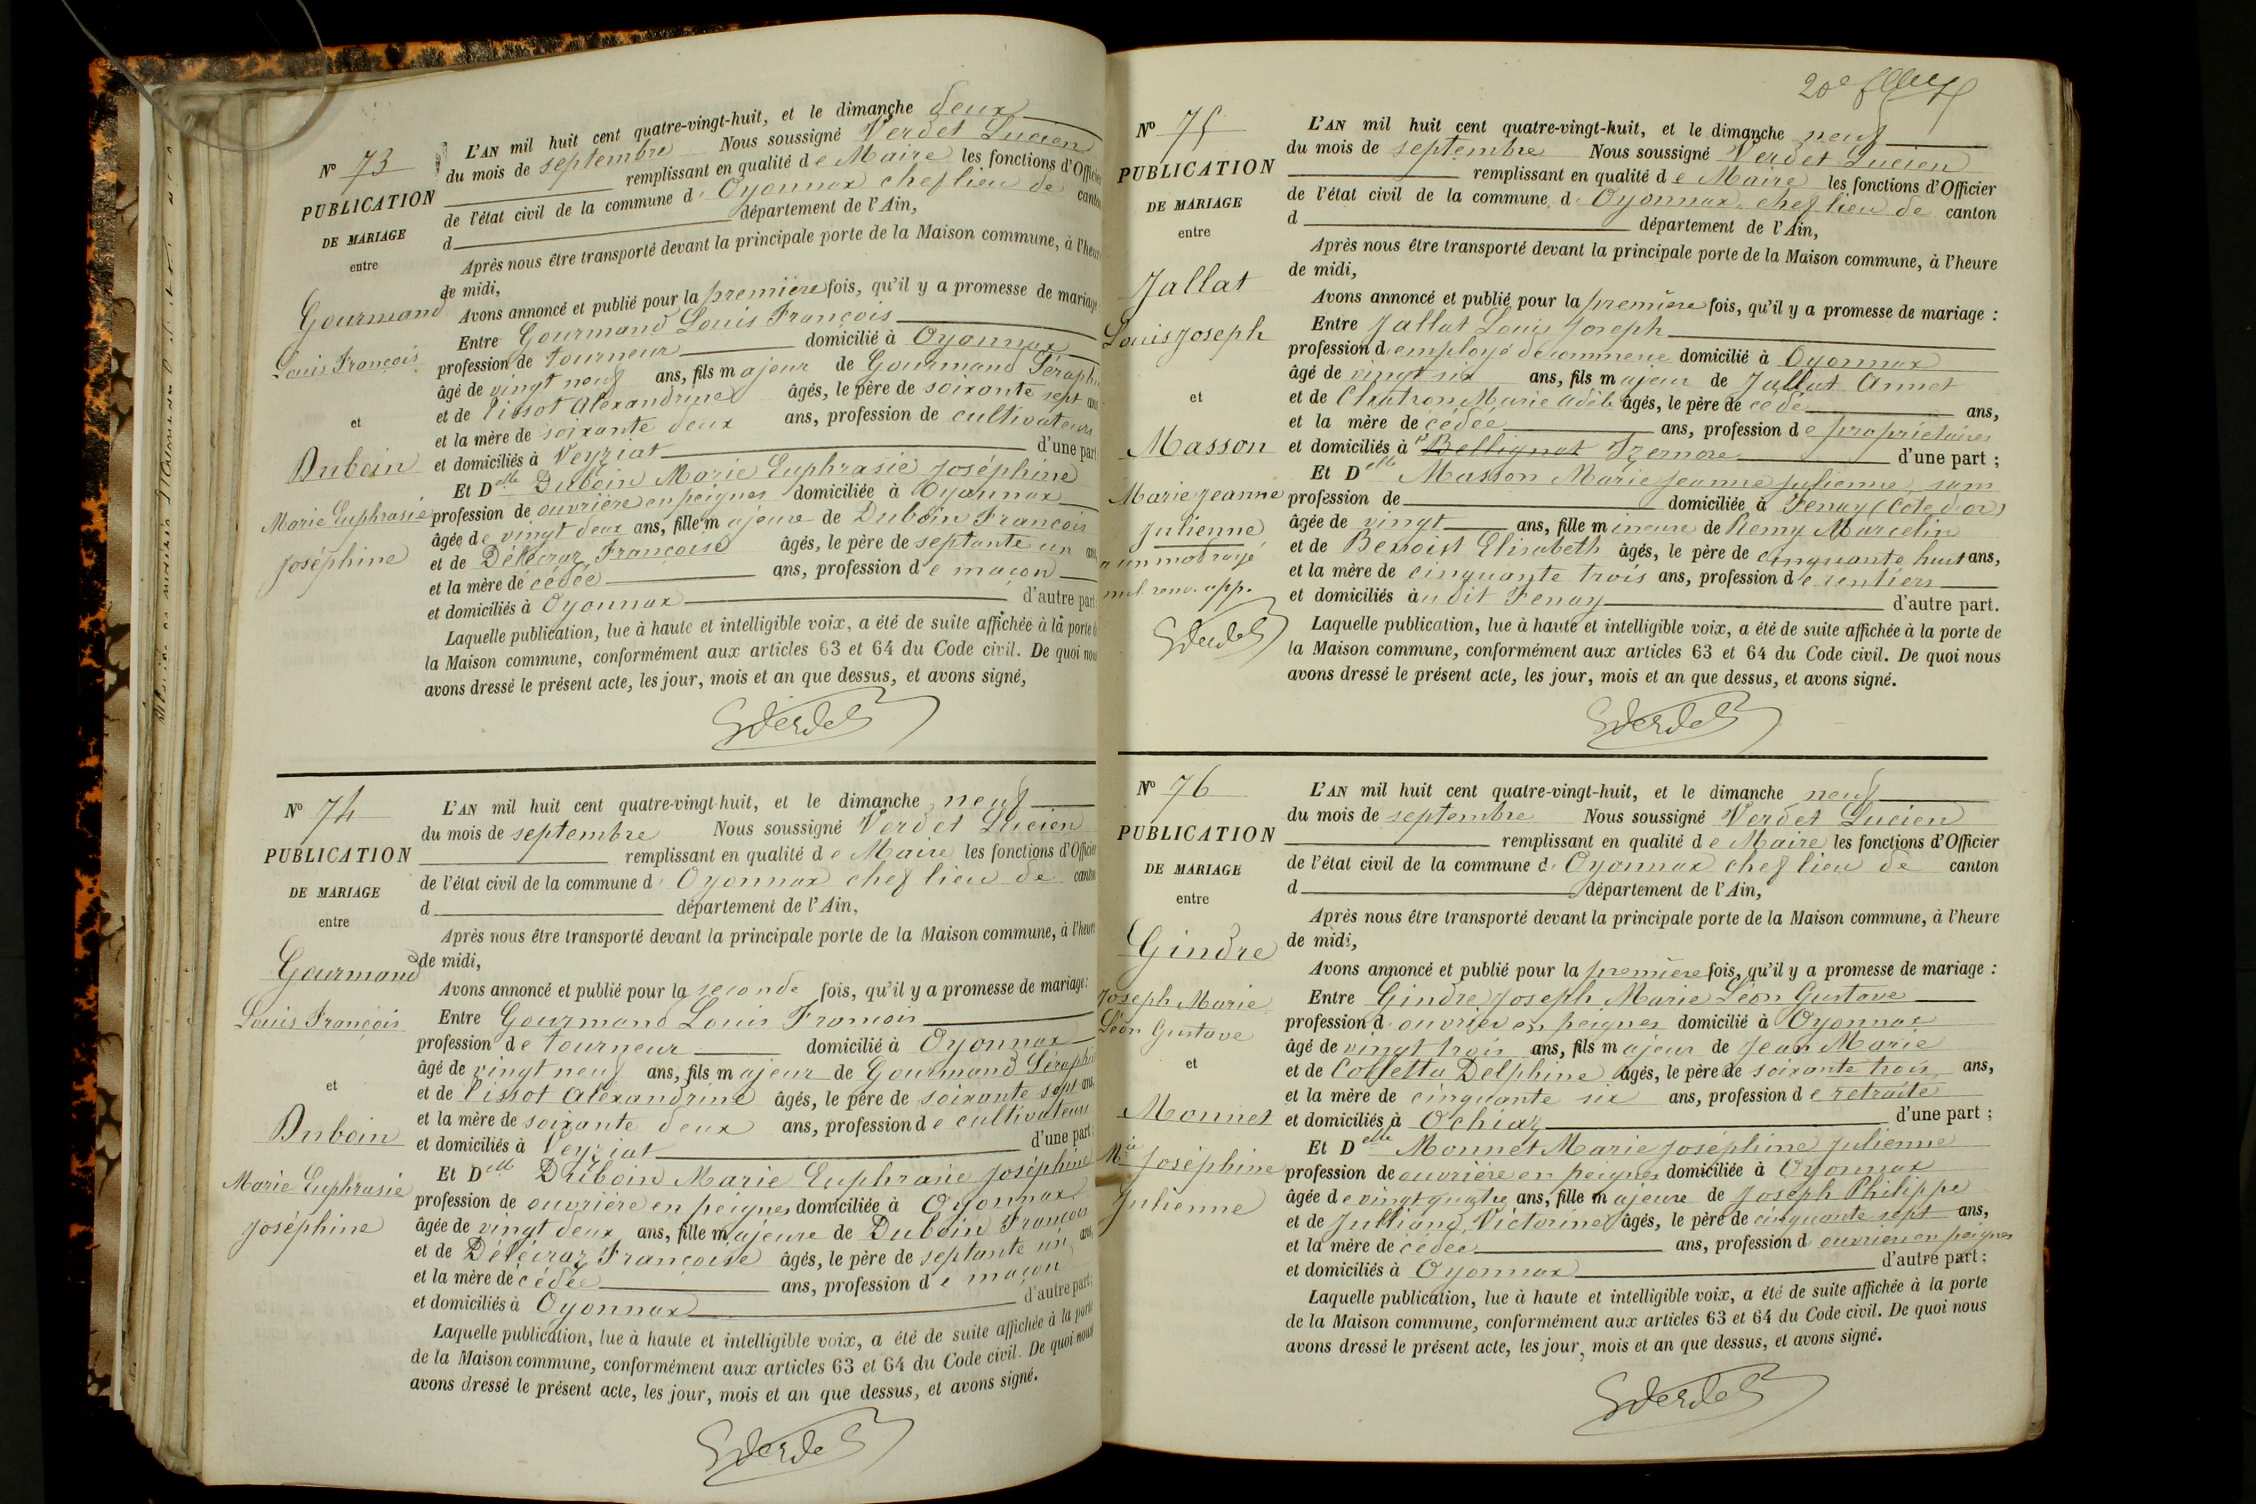 N° 73
PUBLICATION
DE MARIAGE
entre
Gourmand
Louis François
et
Duboin
Marie Euphrasie
Joséphine
L'AN mil huit cent quatre-vingt-huit, et le dimanche deux
du mois de septembre Nous soussigné Verdet Lucien
remplissant en qualité de Maire les fonctions d'Officier
de l'état civil de la commune d' Oyonnax chef lieu de canton
d département de l'Ain,
Après nous être transporté devant la principale porte de la Maison commune, à l'heure
de midi,
Avons annoncé et publié pour la première fois, qu'il y a promesse de mariage
Entre Gourmand Louis François
profession de tourneur domicilié à Oyonnax
âgé de vingt neuf ans, fils majeur de Gourmand Séraphin
et de Pissot Alexandrine âgés, le père de soixante sept ans
et la mère de soixante deux ans, profession de cultivateurs
et domiciliés à Veyziat d'une part
Et Delle Duboin Marie Euphrasie Joséphine
profession de ouvrière en peignes domiciliée à Oyonnax
âgée de vingt deux ans, fille majeure de Duboin François
et de Délécraz Françoise âgés, le père de septante un ans
et la mère de cédée ans, profession de maçon
et domiciliés à Oyonnax d'autre part
Laquelle publication, lue à haute et intelligible voix, a été de suite affichée à la porte de
la Maison commune, conformément aux articles 63 et 64 du Code civil. De quoi nous
avons dressé le présent acte, les jour, mois et an que dessus, et avons signé,
LVerdet
N° 74
PUBLICATION
DE MARIAGE
entre
Gourmand
Louis François
et
Duboin
Marie Euphrasie
Joséphine
L'AN mil huit cent quatre-vingt-huit, et le dimanche neuf
du mois de septembre Nous soussigné Verdet Lucien
remplissant en qualité de Maire les fonctions d'Officier
de l'état civil de la commune d' Oyonnax chef lieu de canton
d département de l'Ain,
Après nous être transporté devant la principale porte de la Maison commune, à l'heure
de midi,
Avons annoncé et publié pour la seconde fois, qu'il y a promesse de mariage:
Entre Gourmand Louis François
profession de tourneur domicilié à Oyonnax
âgé de vingt neuf ans, fils majeur de Gourmand Séraphin
et de Pissot Alexandrine âgés, le père de soixante sept ans,
et la mère de soixante deux ans, profession de cultivateurs
et domiciliés à Veyziat d'une part;
Et Delle Duboin Marie Euphrasie Joséphine
profession de ouvrière en peignes domiciliée à Oyonnax
âgée de vingt deux ans, fille majeure de Duboin François
et de Délécraz Françoise âgés, le père de septante un ans,
et la mère de cédée ans, profession de maçon
et domiciliés à Oyonnax d'autre part;
Laquelle publication, lue à haute et intelligible voix, a été de suite affichée à la porte
de la Maison commune, conformément aux articles 63 et 64 du Code civil. De quoi nous
avons dressé le présent acte, les jour, mois et an que dessus, et avons signé.
LVerdet
20e
N° 75
PUBLICATION
DE MARIAGE
entre
Jallat
Louis Joseph
et
Masson
Marie Jeanne
Julienne
un mot rayé
nul renv. app.
LVerdet
L'AN mil huit cent quatre-vingt-huit, et le dimanche neuf
du mois de septembre Nous soussigné Verdet Lucien
remplissant en qualité de Maire les fonctions d'Officier
de l'état civil de la commune d' Oyonnax chef lieu de canton
d département de l'Ain,
Après nous être transporté devant la principale porte de la Maison commune, à l'heure
de midi,
Avons annoncé et publié pour la première fois, qu'il y a promesse de mariage :
Entre Jallat Louis Joseph
profession d'employé de commerce domicilié à Oyonnax
âgé de vingt six ans, fils majeur de Jallat Annet
et de Chatron Marie Adèle âgés, le père de cédé ans,
et la mère de cédée ans, profession de propriétaires
et domiciliés à Bellignat Izernore d'une part ;
Et Delle Masson Marie Jeanne Julienne, sans
profession de domiciliée à Fenay (Cote d'or)
âgée de vingt ans, fille mineure de Remy Marcelin
et de Benoist Elisabeth âgés, le père de cinquante huit ans,
et la mère de cinquante trois ans, profession de rentiers
et domiciliés audit Fenay d'autre part.
Laquelle publication, lue à haute et intelligible voix, a été de suite affichée à la porte de
la Maison commune, conformément aux articles 63 et 64 du Code civil. De quoi nous
avons dressé le présent acte, les jour, mois et an que dessus, et avons signé.
LVerdet
N° 76
PUBLICATION
DE MARIAGE
entre
Gindre
Joseph Marie
Léon Gustave
et
Monnet
Mie Joséphine
Julienne
L'AN mil huit cent quatre-vingt-huit, et le dimanche neuf
du mois de septembre Nous soussigné Verdet Lucien
remplissant en qualité de Maire les fonctions d'Officier
de l'état civil de la commune d' Oyonnax chef lieu de canton
d département de l'Ain,
Après nous être transporté devant la principale porte de la Maison commune, à l'heure
de midi,
Avons annoncé et publié pour la première fois, qu'il y a promesse de mariage :
Entre Gindre Joseph Marie Léon Gustave
profession d'ouvrier en peignes domicilié à Oyonnax
âgé de vingt trois ans, fils majeur de Jean Marie
et de Colletta Delphine âgés, le père de soixante trois ans,
et la mère de cinquante six ans, profession de retraité
et domiciliés à Ochiaz d'une part ;
Et Delle Monnet Marie Joséphine Julienne
profession de ouvrière en peignes domiciliée à Oyonnax
âgée de vingt quatre ans, fille majeure de Joseph Philippe
et de Julliand Victorine âgés, le père de cinquante sept ans,
et la mère de cédée ans, profession d' ouvrier en peignes
et domiciliés à Oyonnax d'autre part ;
Laquelle publication, lue à haute et intelligible voix, a été de suite affichée à la porte
de la Maison commune, conformément aux articles 63 et 64 du Code civil. De quoi nous
avons dressé le présent acte, les jour, mois et an que dessus, et avons signé.
LVerdet